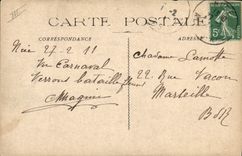 CARTE POSTALE
CORRESPONDANCE
ADRESSE
Nice 27-2-11
Vu Carnaval
Verrons bataille fleurs
Madame Lamotte
22 Rue Vacon
Marseille
B d R